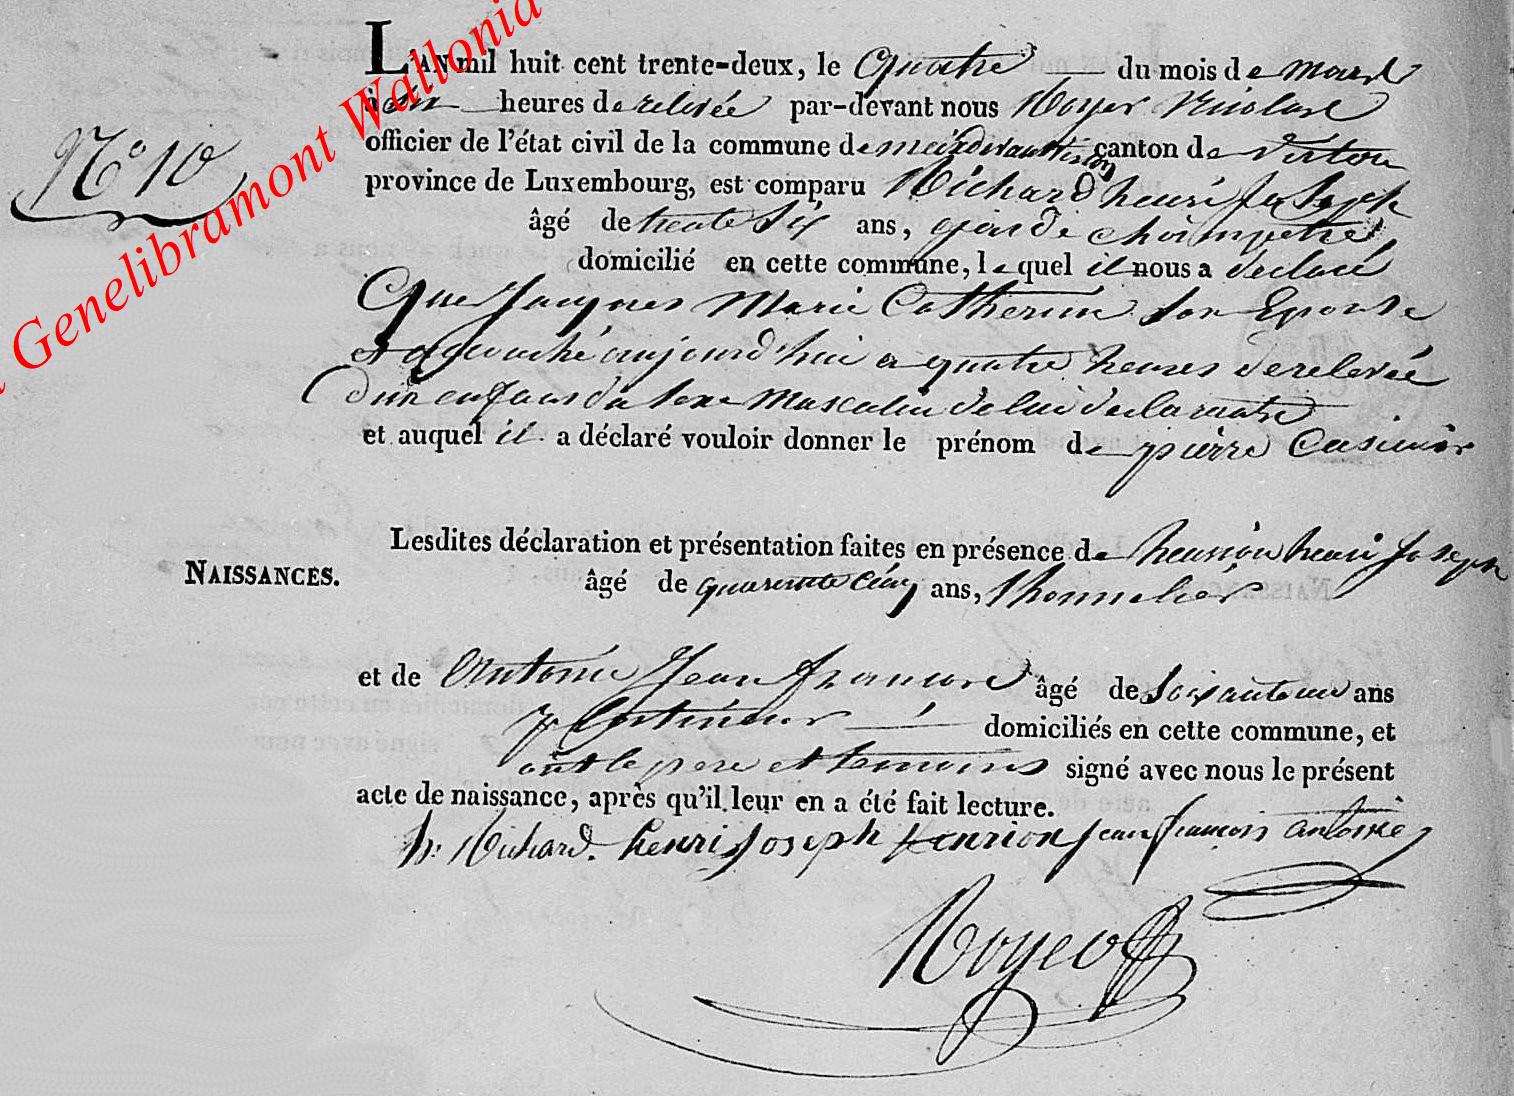 Genelibramont Wallonia
L'AN mil huit cent trente-deux, le Quatre du mois de mars
à six heures de relevée par-devant nous Royer Nicolas
N° 10
officier de l'état civil de la commune de meix devant Virton canton de Virton
province de Luxembourg, est comparu Richard henri Joseph
âgé de trente six ans, garde champetre
domicilié en cette commune, lequel il nous a déclaré
Que Jacques Marie Catherine son Epouse
est accouché aujourd'hui a quatre heures de relevée
d'un enfans du sexe Masculin de lui declarante
et auquel il a déclaré vouloir donner le prénom de pierre Casimir
Lesdites déclaration et présentation faites en présence de henrion henri Joseph
NAISSANCES.
âgé de quarante cinq ans, thonnelier
et de Antoine Jean francois âgé de soixante un ans
domiciliés en cette commune, et
ont le pere et temoins signé avec nous le présent
acte de naissance, après qu'il leur en a été fait lecture.
h: Richard. henri joseph henrion jean francois antoine
Royer